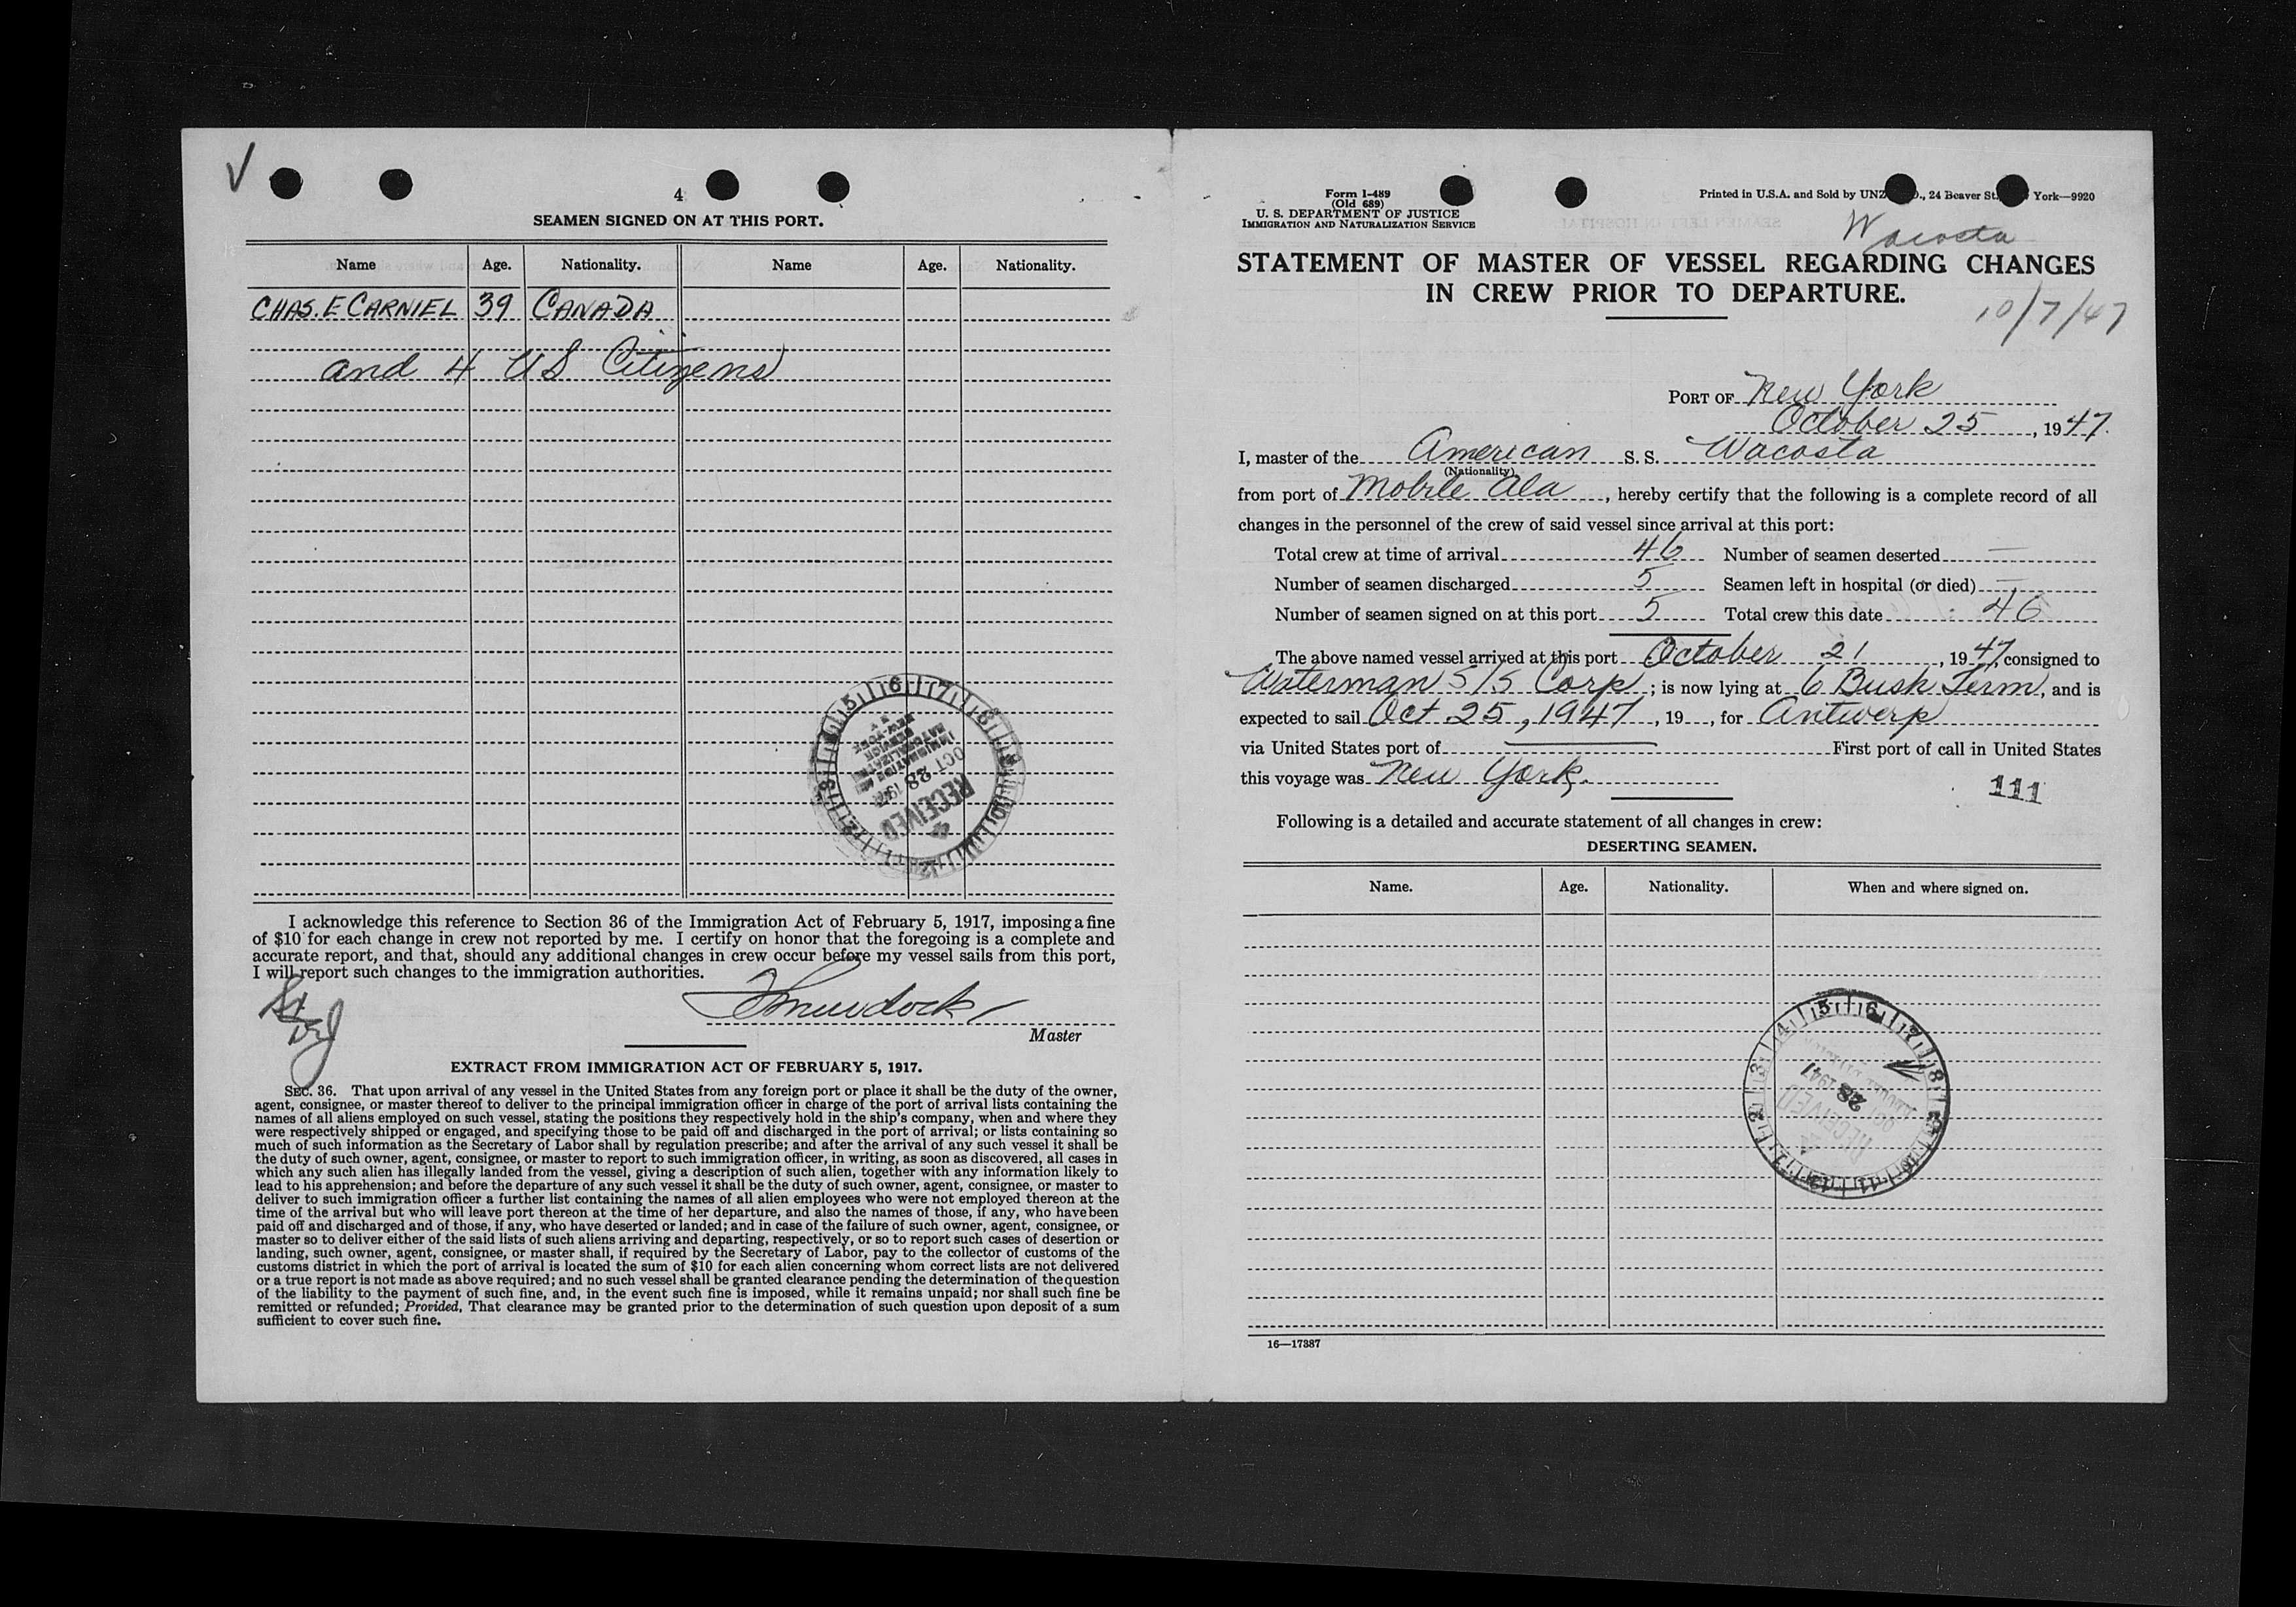 4
SEAMEN SIGNED ON AT THIS PORT.
Name Age. Nationality. Name Age. Nationality.
CHAS. E CARNIEL 39 CANADA
and 4 US Citizens
RECEIVED
OCT 28 1947
I acknowledge this reference to Section 36 of the Immigration Act of February 5, 1917, imposing a fine
of $10 for each change in crew not reported by me. I certify on honor that the foregoing is a complete and
accurate report, and that, should any additional changes in crew occur before my vessel sails from this port,
I will report such changes to the immigration authorities.
Murdock
Master
EXTRACT FROM IMMIGRATION ACT OF FEBRUARY 5, 1917.
SEC. 36. That upon arrival of any vessel in the United States from any foreign port or place it shall be the duty of the owner,
agent, consignee, or master thereof to deliver to the principal immigration officer in charge of the port of arrival lists containing the
names of all aliens employed on such vessel, stating the positions they respectively hold in the ship's company, when and where they
were respectively shipped or engaged, and specifying those to be paid off and discharged in the port of arrival; or lists containing so
much of such information as the Secretary of Labor shall by regulation prescribe; and after the arrival of any such vessel it shall be
the duty of such owner, agent, consignee, or master to report to such immigration officer, in writing, as soon as discovered, all cases in
which any such alien has illegally landed from the vessel, giving a description of such alien, together with any information likely to
lead to his apprehension; and before the departure of any such vessel it shall be the duty of such owner, agent, consignee, or master to
deliver to such immigration officer a further list containing the names of all alien employees who were not employed thereon at the
time of the arrival but who will leave port thereon at the time of her departure, and also the names of those, if any, who have been
paid off and discharged and of those, if any, who have deserted or landed; and in case of the failure of such owner, agent, consignee, or
master so to deliver either of the said lists of such aliens arriving and departing, respectively, or so to report such cases of desertion or
landing, such owner, agent, consignee, or master shall, if required by the Secretary of Labor, pay to the collector of customs of the
customs district in which the port of arrival is located the sum of $10 for each alien concerning whom correct lists are not delivered
or a true report is not made as above required; and no such vessel shall be granted clearance pending the determination of the question
of the liability to the payment of such fine, and, in the event such fine is imposed, while it remains unpaid; nor shall such fine be
remitted or refunded; Provided, That clearance may be granted prior to the determination of such question upon deposit of a sum
sufficient to cover such fine.
Form I-489
(Old 689)
U. S. DEPARTMENT OF JUSTICE
IMMIGRATION AND NATURALIZATION SERVICE
Printed in U.S.A. and Sold by UNZ ., 24 Beaver St. York—9920
Wacosta
STATEMENT OF MASTER OF VESSEL REGARDING CHANGES
IN CREW PRIOR TO DEPARTURE.
10/7/47
PORT OF New York
October 25, 1947.
I, master of the American S. S. Wacosta
(Nationality)
from port of Mobile Ala, hereby certify that the following is a complete record of all
changes in the personnel of the crew of said vessel since arrival at this port:
Total crew at time of arrival 46 Number of seamen deserted —
Number of seamen discharged 5 Seamen left in hospital (or died) —
Number of seamen signed on at this port 5 Total crew this date 46
The above named vessel arrived at this port October 21, 1947, consigned to
Waterman S/S Corp; is now lying at 6 Bush Term, and is
expected to sail Oct 25, 1947, 19 , for Antwerp
via United States port of — First port of call in United States
this voyage was New York.
111
Following is a detailed and accurate statement of all changes in crew:
DESERTING SEAMEN.
Name. Age. Nationality. When and where signed on.
RECEIVED
OCT 28 1947
16—17387